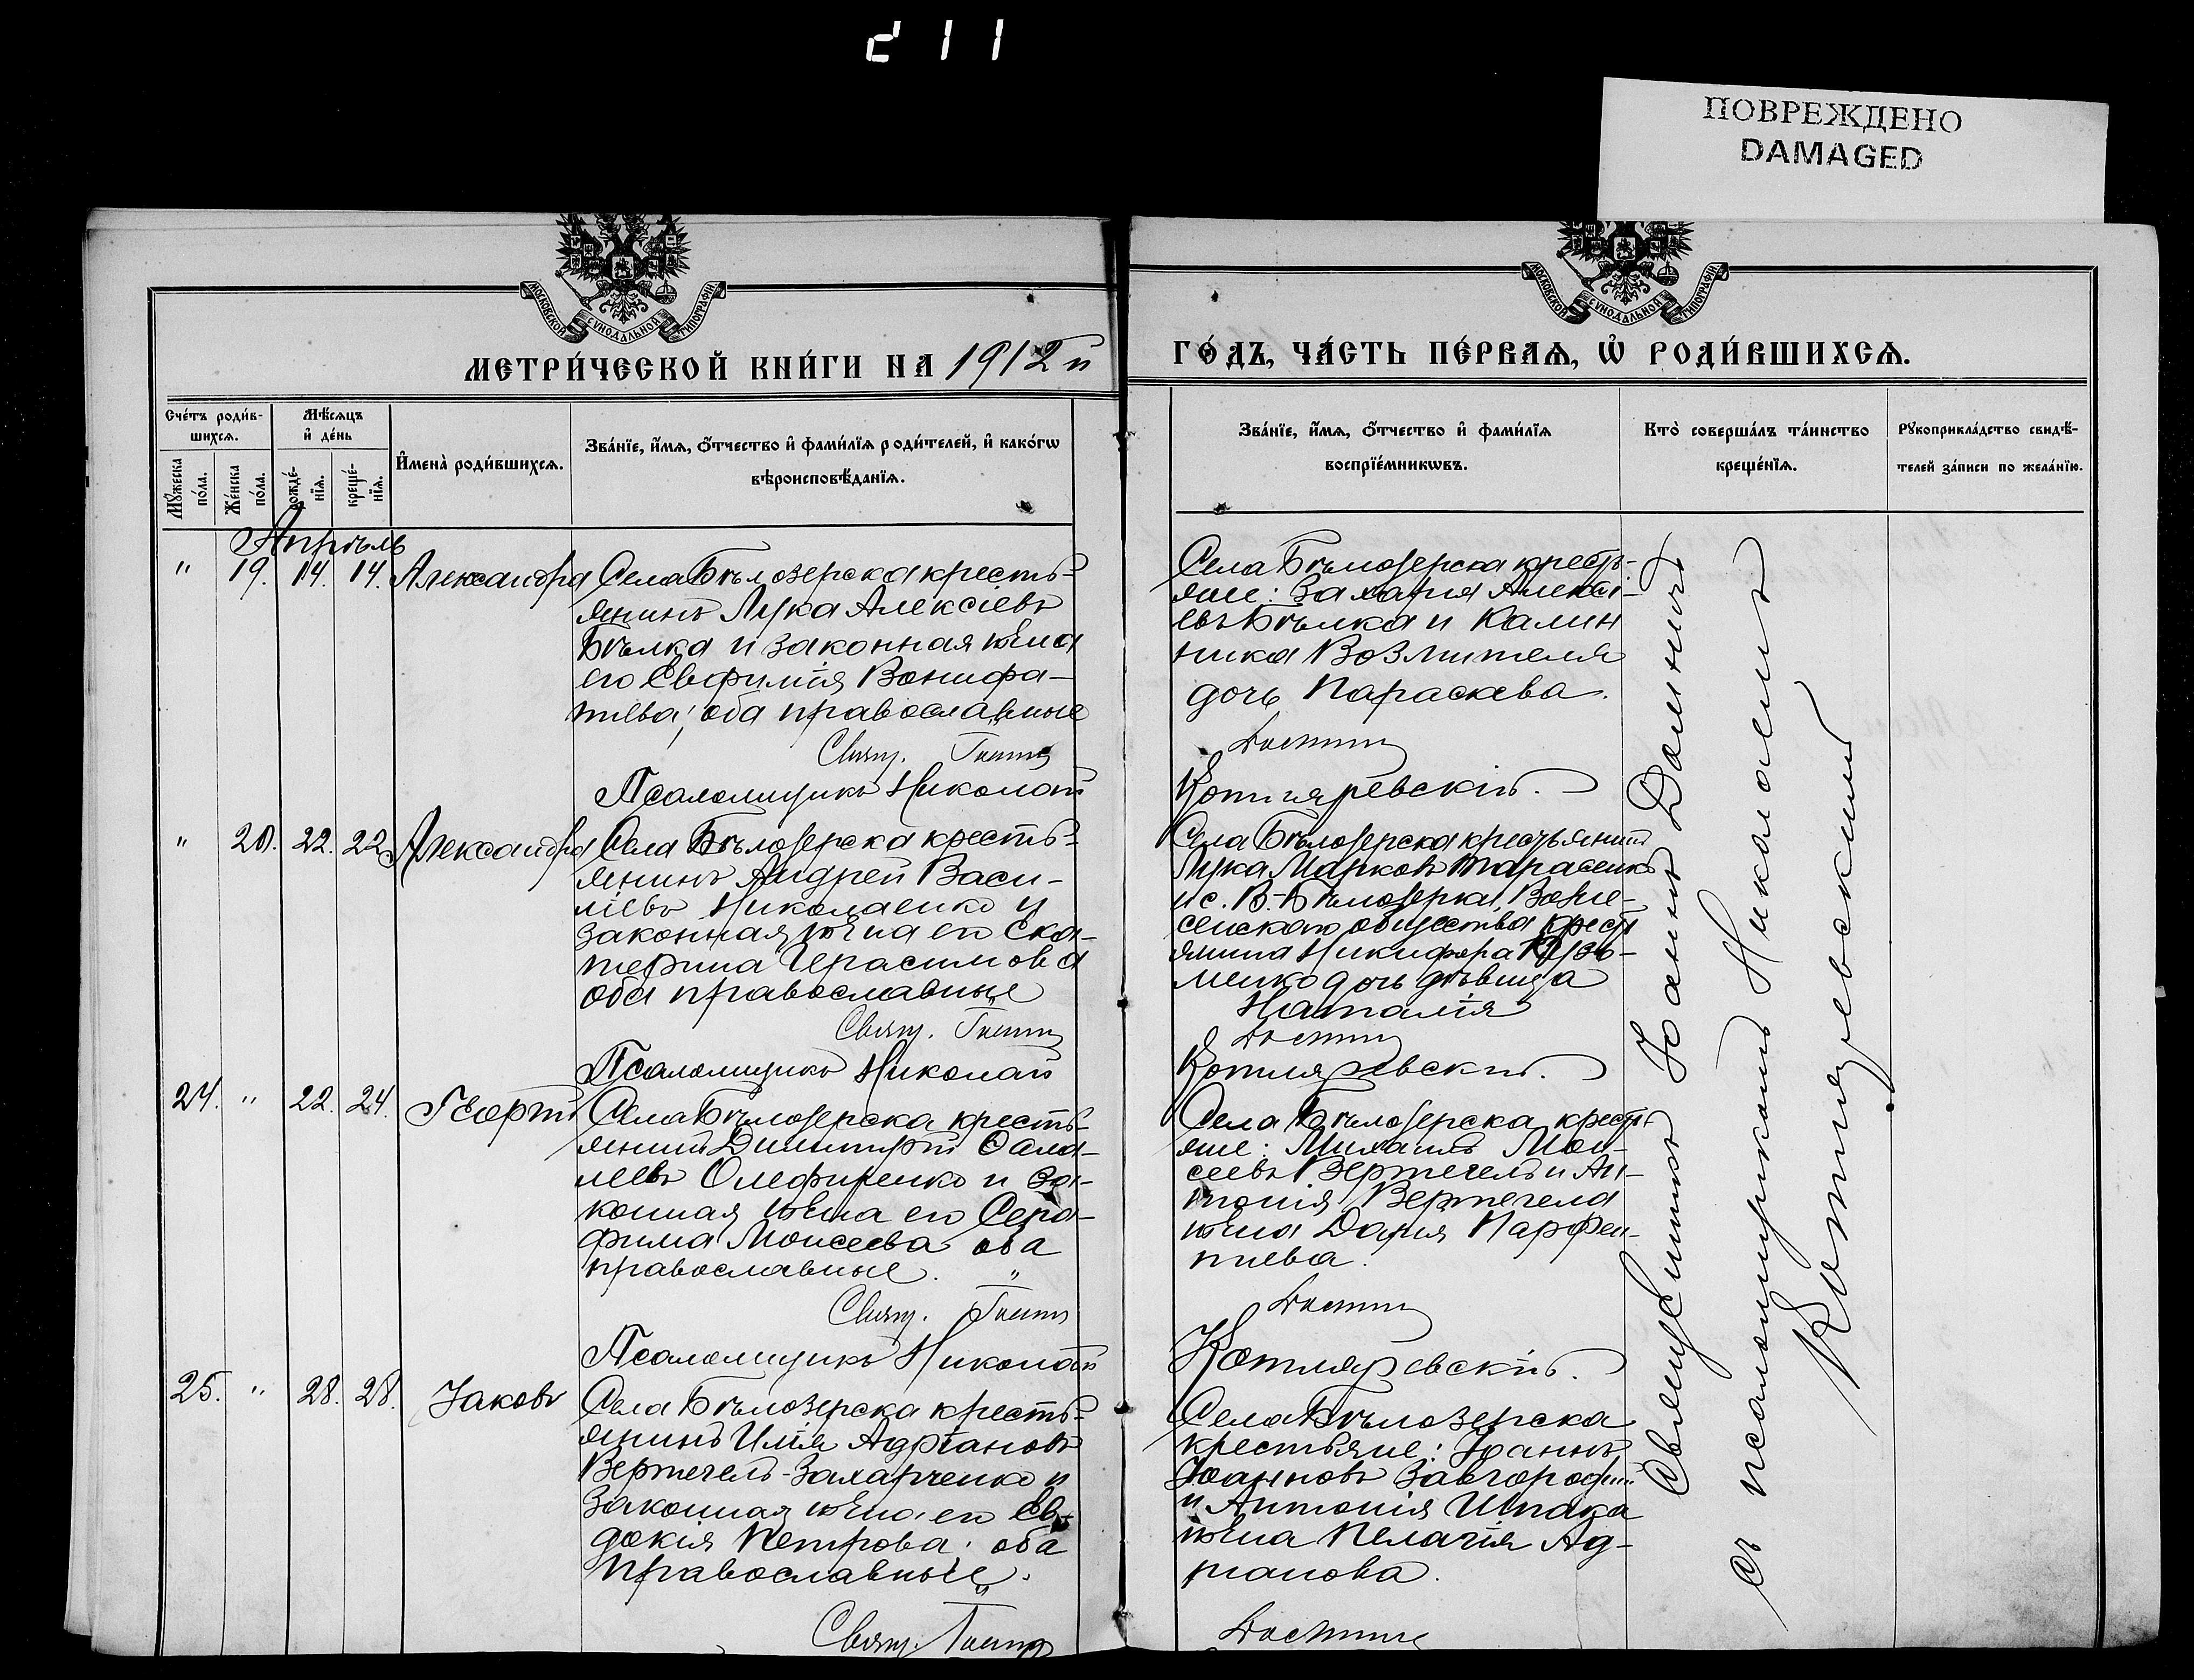 211
ПОВРЕЖДЕНО
DAMAGED
МОСКОВСКОЙ СѴНОДАЛЬНОЙ ТИПОГРАФІИ
МОСКОВСКОЙ СѴНОДАЛЬНОЙ ТИПОГРАФІИ
МЕТРИ́ЧЕСКОЙ КНИ́ГИ НА 1912й
ГО́ДЪ, ЧА́СТЬ ПЕ́РВАѦ, Ѡ҆ РОДИ́ВШИХСѦ.
Сче́тъ роди́в-
шихсѧ.
Мꙋ́жеска
по́ла.
Же́нска
по́ла.
Мѣ́сѧцъ
и҆ де́нь
рожде́-
нїѧ.
креще́-
нїѧ.
И҆мена̀ роди́вшихсѧ.
Зва́нїе, и҆́мѧ, ѻ҆́тчество и҆ фами́лїѧ роди́телей, и҆ како́гѡ
вѣроисповѣ́данїѧ.
Зва́нїе, и҆́мѧ, ѻ҆́тчество и҆ фами́лїѧ
воспрїе́мникѡвъ.
Кто̀ соверша́лъ та́инство
креще́нїѧ.
Рꙋкоприкла́дство свидѣ́-
телей за́писи по жела́нїю.
Апрѣль
" 19. 14. 14. Александра
Села Бѣлозерска кресть-
янинъ Лука Алексіевъ
Бѣлка и законная жена
его Евфимія Вонифа-
тіева; оба православные
Свящ. Іоаннъ
Псаломщикъ Николай
Села Бѣлозерска кресть-
яне: Захарія Алексі-
евъ Бѣлка и Калин
ника Возлителя
дочь Параскева.
Котляревскій.
" 20. 22. 22. Александра
Села Бѣлозерска кресть-
янинъ Андрей Васи-
ліевъ Николаенко и
законная жена его Ека-
терина Герасимова
оба православные
Свящ. Іоаннъ
Псаломщикъ Николай
Села Бѣлозерска крестьянинъ
Лука Марковъ Тарасенко
и с. В.-Бѣлозерка, Возне-
сенскаго общества крест
янина Никифора Кузь-
менко дочь дѣвица
Наталія
Котляревскій.
24. " 22. 24. Георгій
Села Бѣлозерска кресть-
янинъ Димитрій
Олефиренко и за-
конная жена его Сера-
фима Моисеева оба
православные.
Свящ. Іоаннъ
Псаломщикъ Николай
Села Бѣлозерска кресть-
яне: Михаилъ Мои-
сеевъ Вертегелъ и Ан-
тонія Вертегела
жена Дарія Парфен-
тіева.
Котляревскій.
25. " 28. 28. Іаковъ
Села Бѣлозерска кресть-
янинъ Илія Адріановъ
Вертегелъ-Захарченко и
законная жена его Ев-
докія Петрова; оба
православные.
Свящ. Іоаннъ
Села Бѣлозерска
крестьяне: Іоаннъ
Іоанновъ Завгородній
и Антонія Шпака
жена Пелагія Ад-
ріанова.
Священникъ Іоаннъ
съ псаломщикомъ Николаемъ
Котляревскимъ